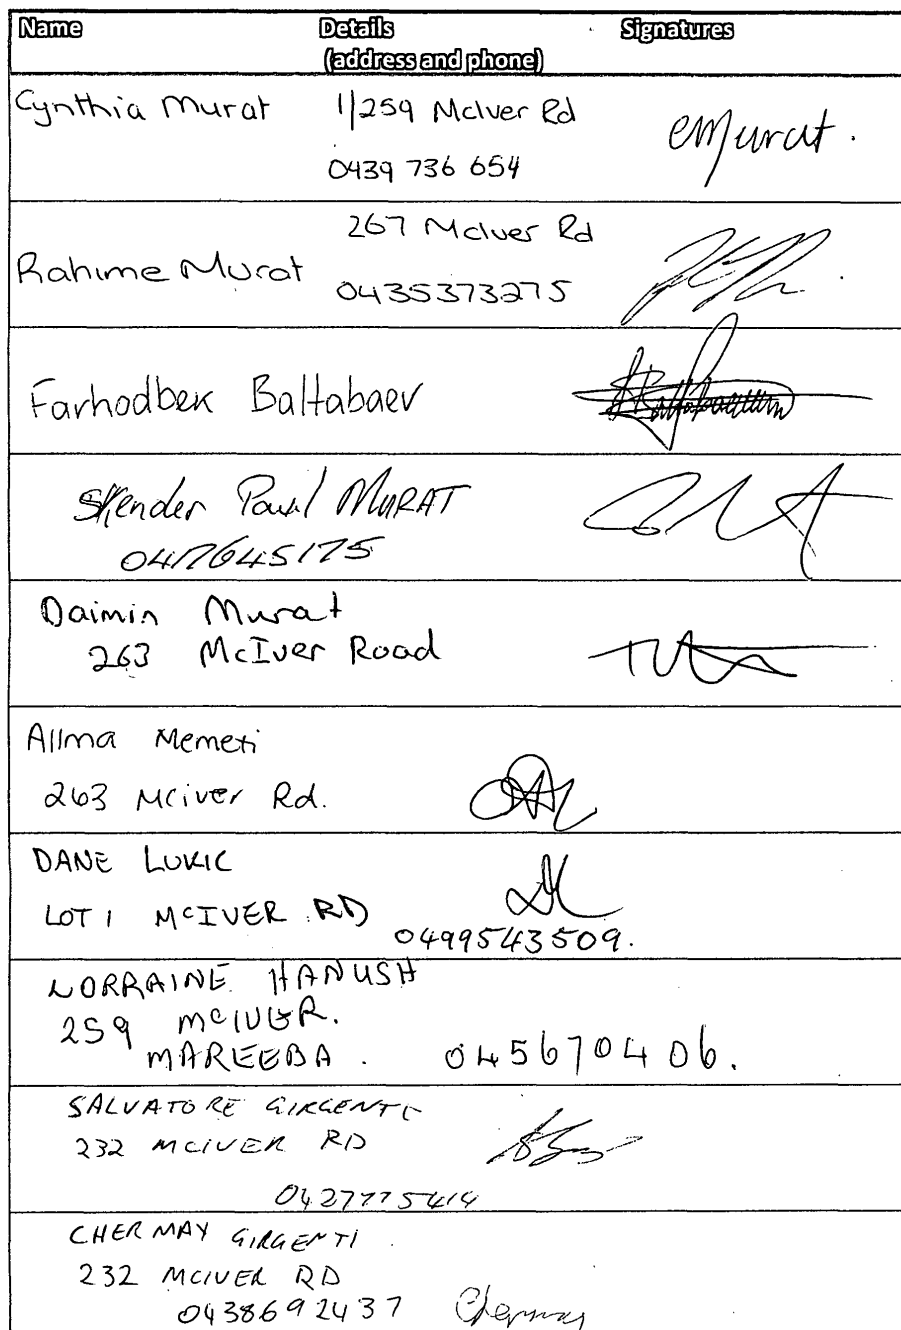 Name Details Signatures
(address and phone)
Cynthia Murat 1/259 McIver Rd
0439 736 654
CMurat.
267 McIver Rd
Rahime Murat
0435373275
Farhodbek Baltabaev
Skender Paul MURAT
0417645175
Daimin Murat
263 McIver Road
Allma Memeti
263 McIver Rd.
DANE LUKIC
LOT 1 McIVER RD
0499543509.
LORRAINE HANUSH
259 McIVER.
MAREEBA. 045670406.
SALVATORE GIRGENTI
232 MCIVER RD
0427775414
CHERMAY GIRGENTI
232 MCIVER RD
0438692437 Chermay